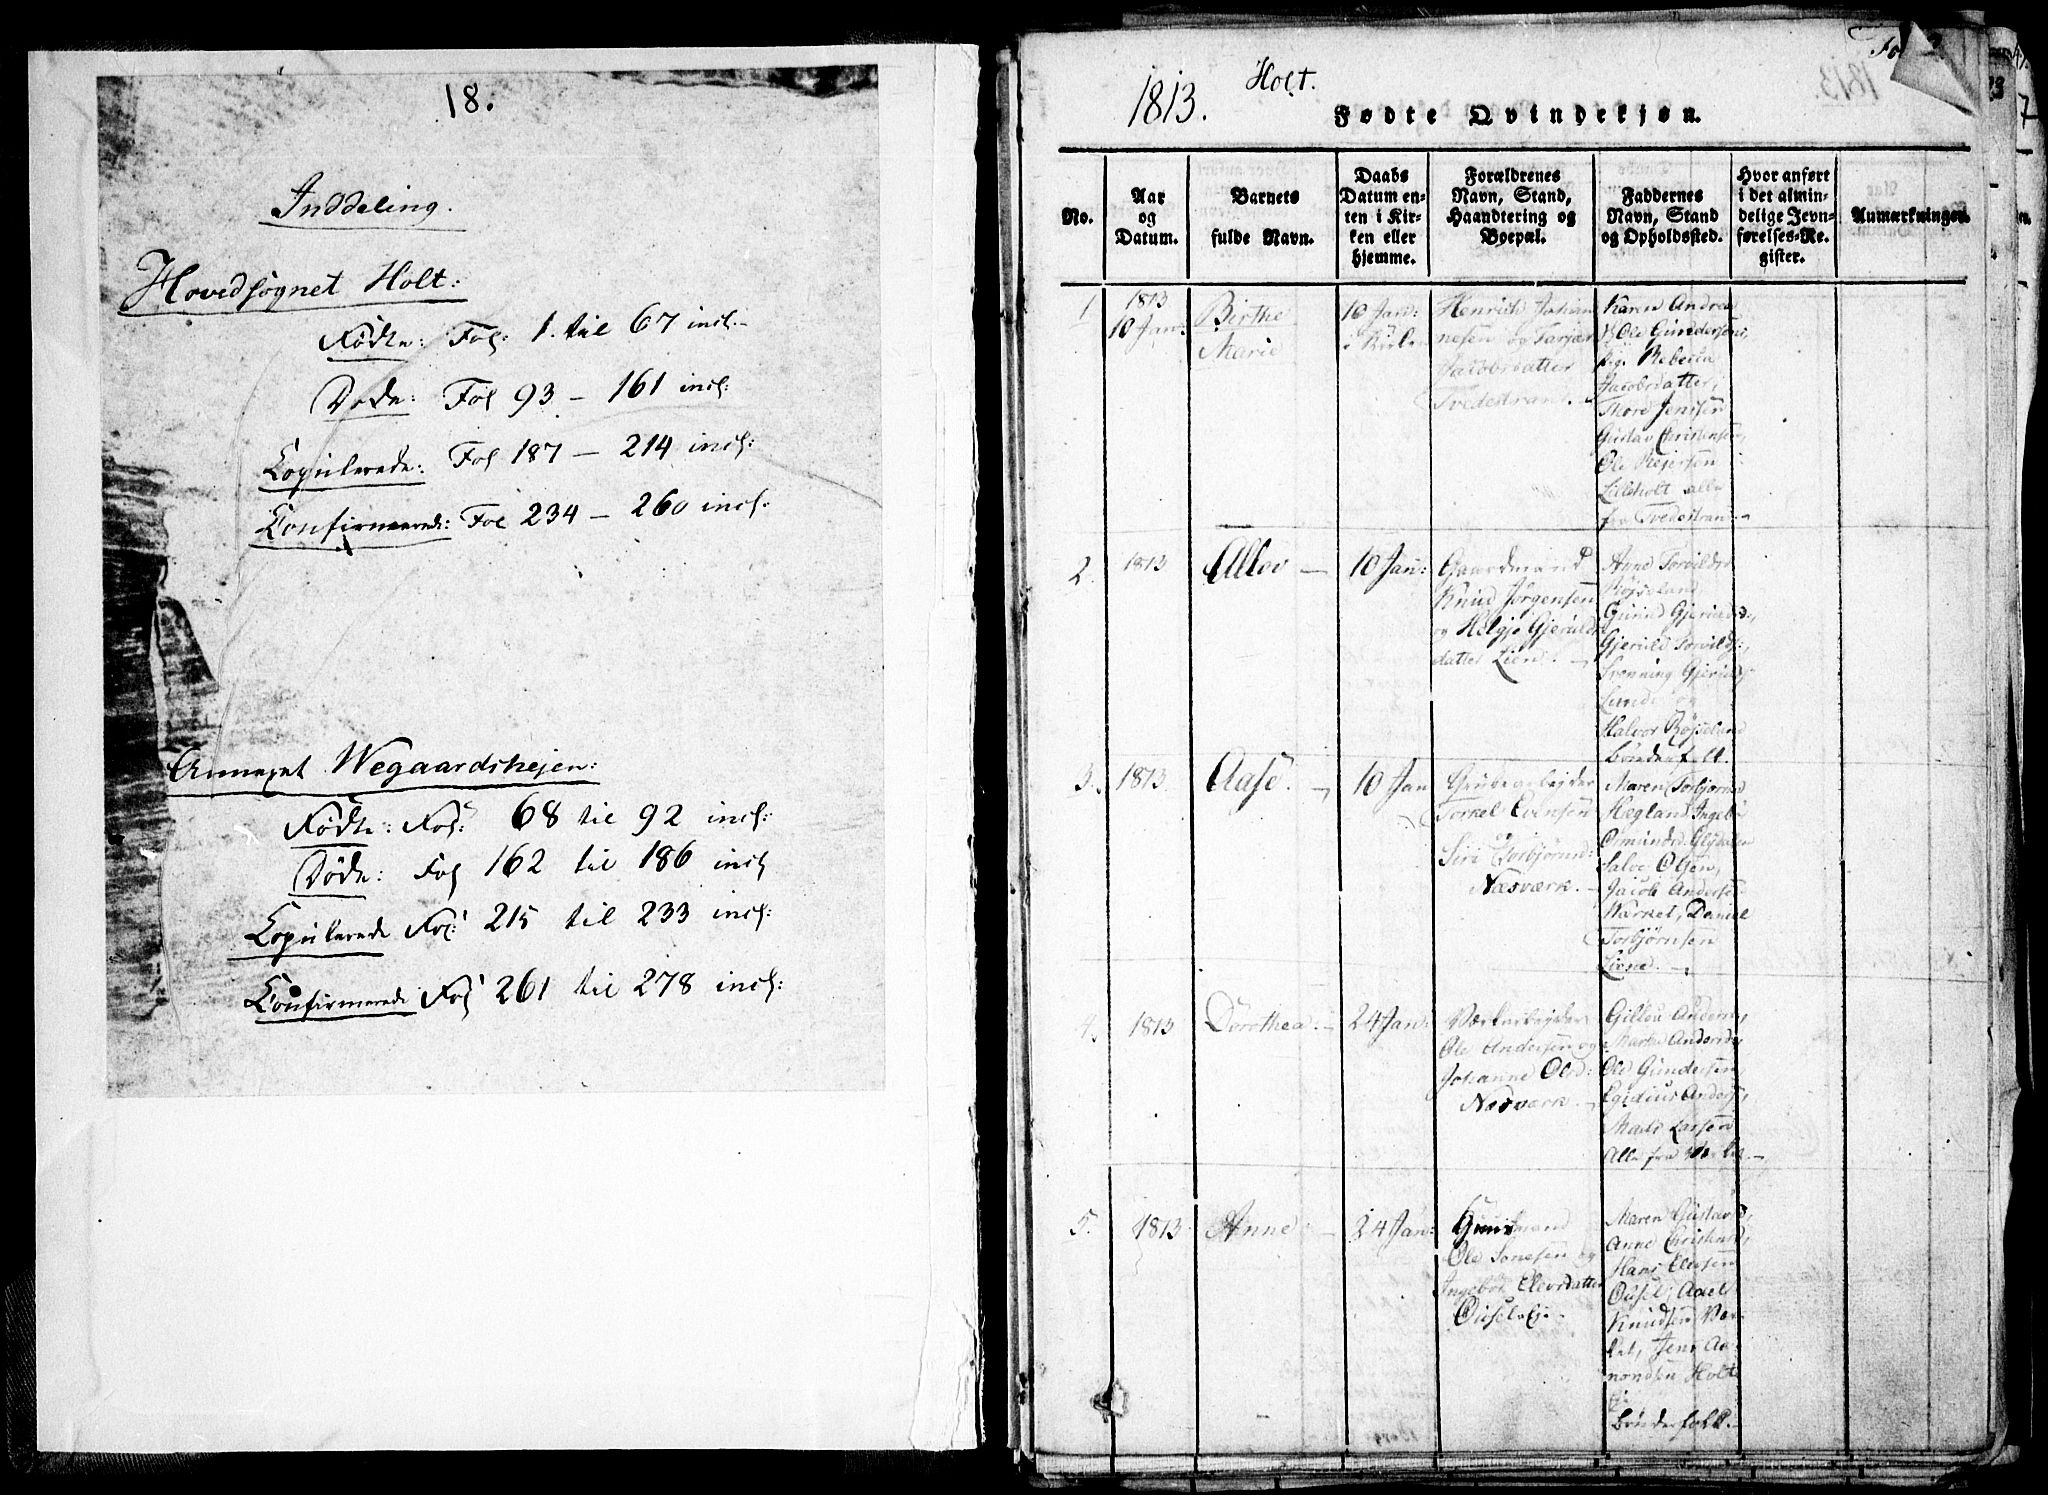 18.
Inddeling.
Hovedsognet Holt:
Fødte: Fol: 1. til 67 incl.
Døde: Fol 93 – 161 incl:
Copulerede: Fol 187 – 214 incl:
Confirmerede: Fol 234 – 260 incl.
Annexet Wegaardshejen:
Fødte: Fol: 68 til 92 incl:
Døde: Fol 162 til 186 incl
Copulerede Fol: 215 til 233 incl:
Confirmerede Fol 261 til 278 incl:
1813. Holt.
Fødte Qvindekjøn.
No.
Aar
og
Datum.
Barnets
fulde Navn.
Daabs
Datum en-
ten i Kir-
ken eller
hjemme.
Forældrenes
Navn, Stand,
Haandtering og
Boepæl.
Faddernes
Navn, Stand
og Opholdssted.
Hvor anført
i det almin-
delige Jevn-
førelses-Re-
gister.
Anmærkninger.
1
1813
10 Jan:
Birthe
Marie
10 Jan:
i Kirken
Henrich Johan
nesen og Tarjær
Jacobsdatter
Tvedestrand. –
Karen Andrea
Ole Gundersens,
pig. Rebecca
Jacobsdatter,
Thore Jensen
Gustav Christensen,
Ole Rejersen
Lilleholt alle
fra Tvedestran –
2.
1813
Allov –
10 Jan:
Gaardmand
Knud Jørgensen
og Helgje Gjerulds
datter Liene. –
Anne Torvilds
Røjseland
Gunild Gjerulds:,
Gjeruld Torvilds:,
Svenning Gjeruls:
Lunde
Halvor Røjseland
Bønderfolk.
3.
1813
Aase. –
10 Jan
Grubearbejder
Torkel Evensen
og
Siri Torbjørnd:
Næsværk. –
Maren Torbjørnsd
Hægland, Ingebr
Osmundsd
Salve Olsen,
Jacob Andersen
Værket, Daniel
Torbjørnsen
Liene. –
4.
1813
Dorothea. –
24 Jan:
Værkarbejder
Ole Andersen og
Johanne Olsd:
Næsværk. –
Anders,
Marthe Andersd,
Ole Gundersen
Egidius Anders,
Mads Larsen
Alle fra Værket. –
5.
1813
Anne –
24 Jan:
Huusmand
Ole Sonesen og
Ingebor Elevsdatter
Øusel. –
Maren Gustavsd,
Anne Christensd,
Hans Elefsen
Øusel, Axel
Knudsen Vær-
ket, Jens Aa-
nondsen Holt
Bønderfolk. –